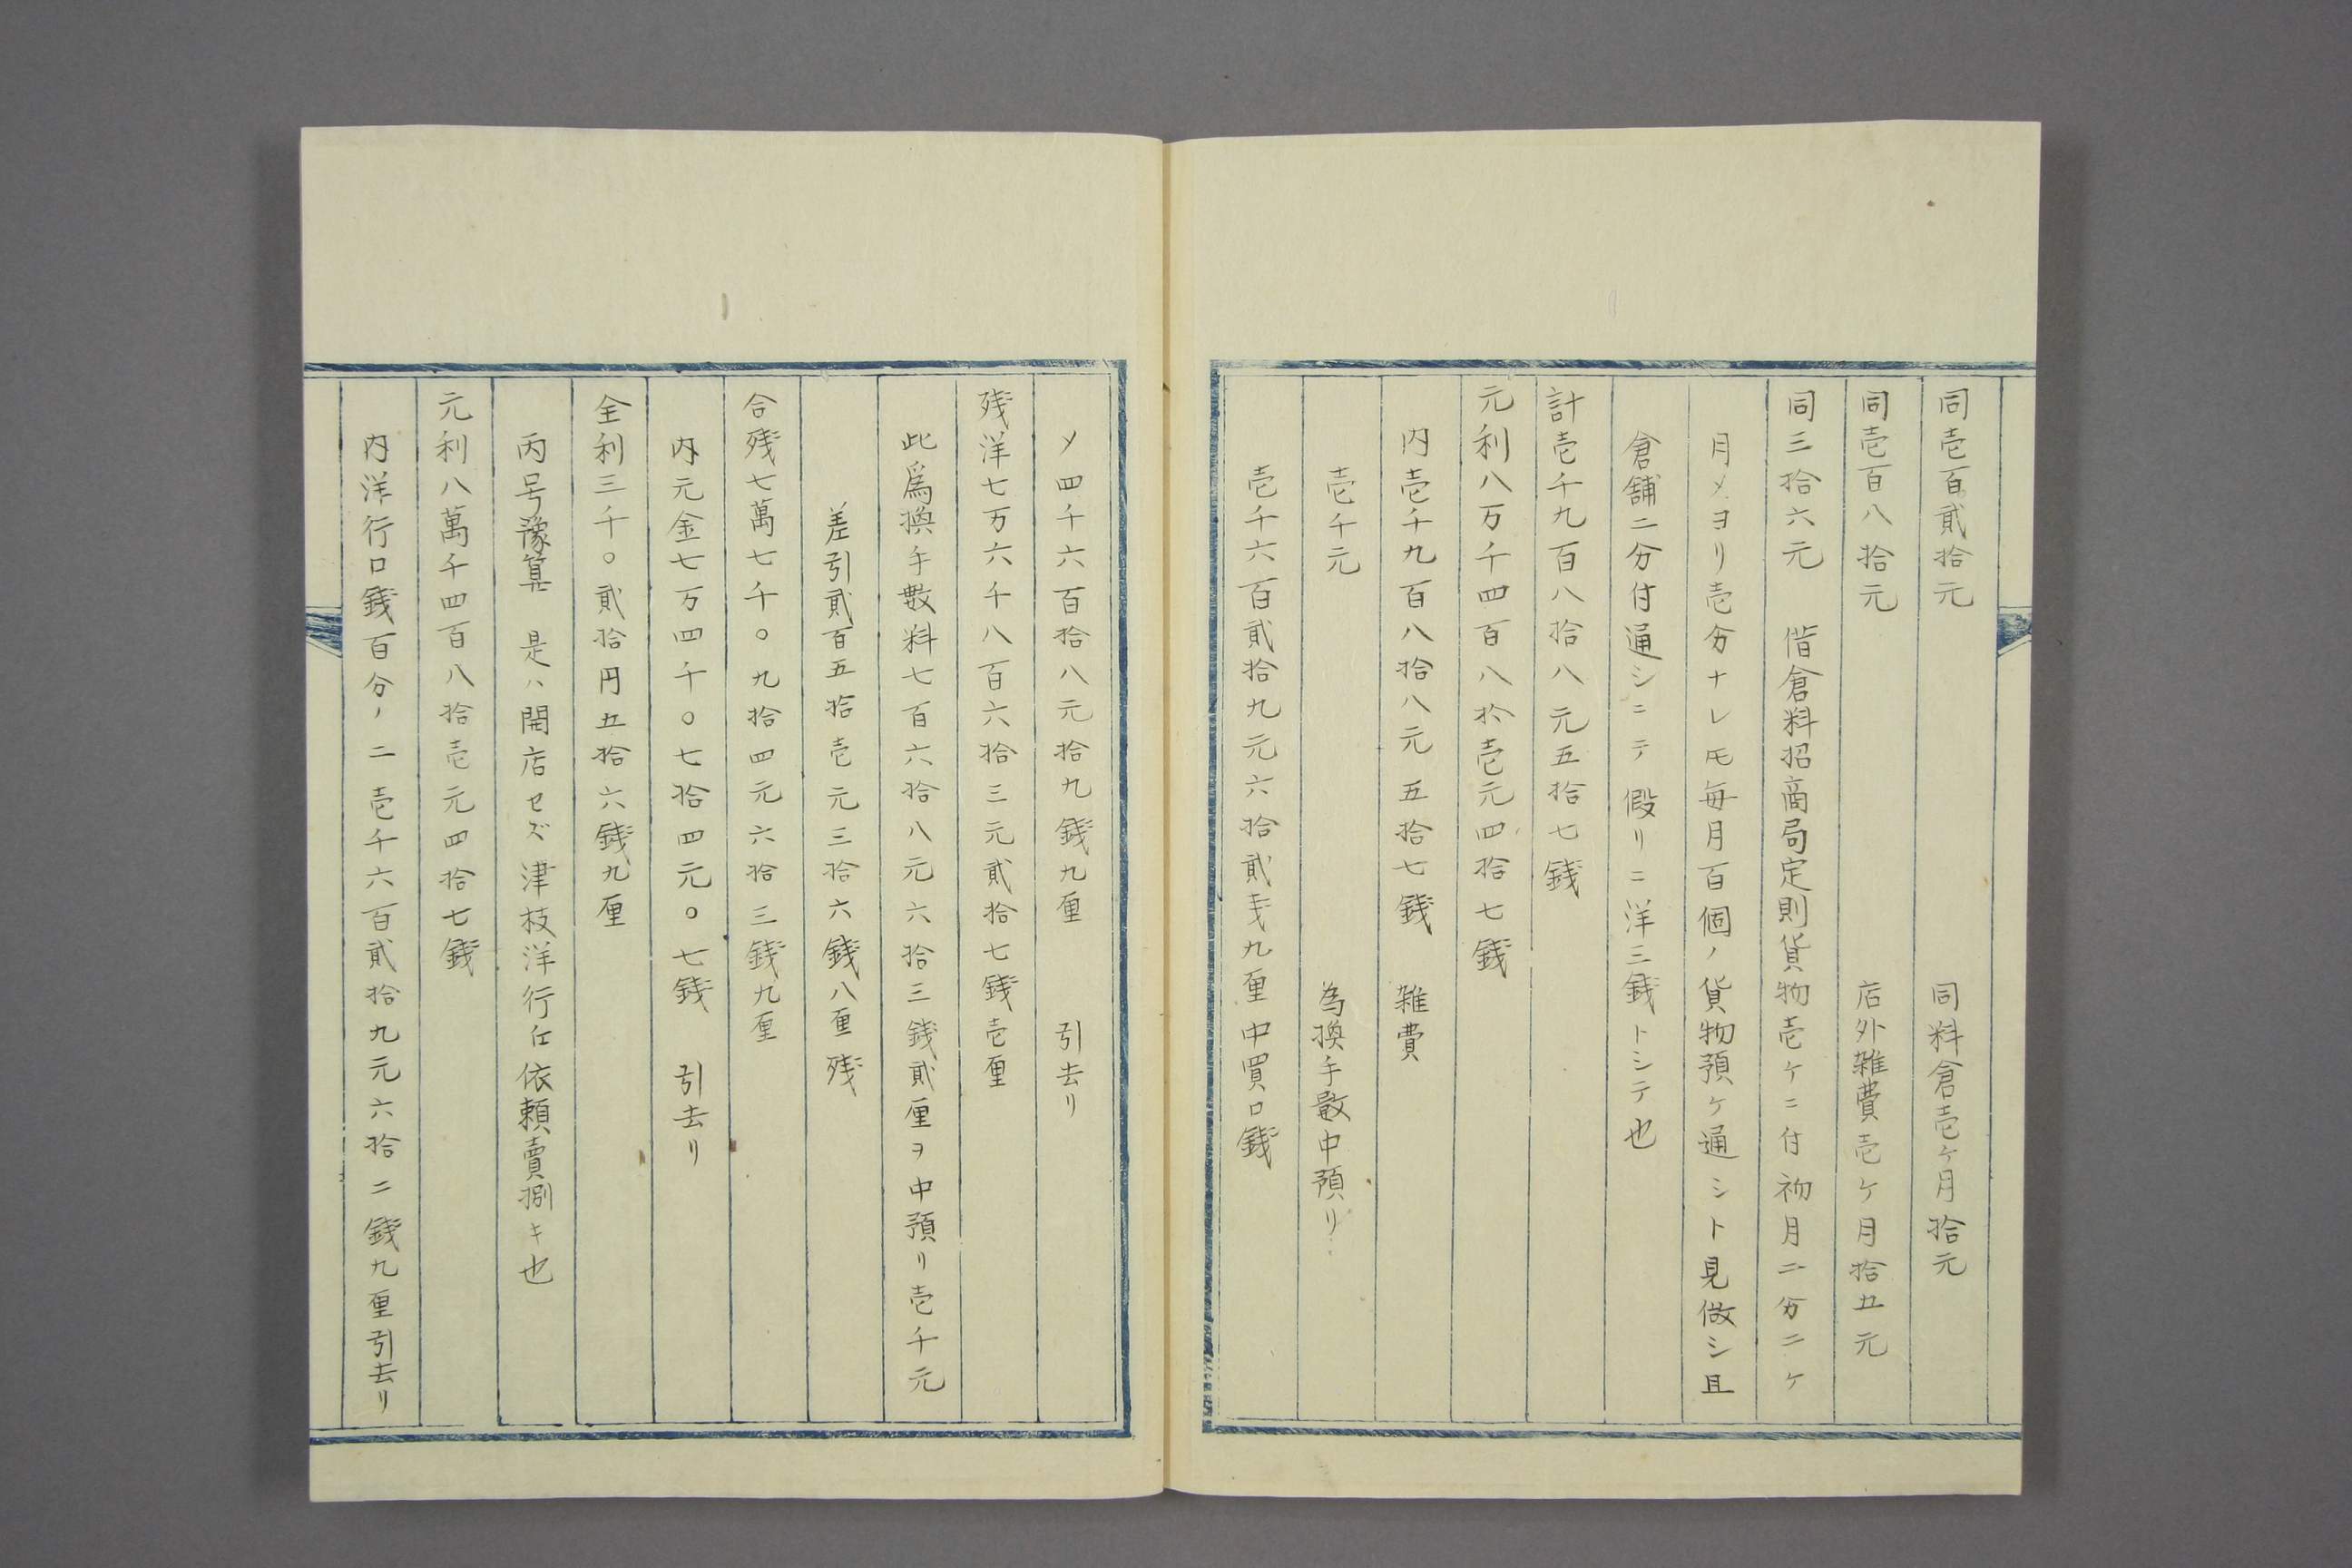 同壱百貳拾元 同料倉壱ケ月拾元
同壱百八拾元 店外雑費壱ケ月拾五元
同三拾六元 借倉料招商局定則貨物壱ケニ付初月二分二ケ
月〆ヨリ壱分ナレ𪜈毎月百個ノ貨物預ケ通シト見做シ且
倉舗二分付通シニテ假リニ洋三錢トシテ也
計壱千九百八拾八元五拾七錢
元利八万千四百八拾壱元四拾七錢
内壱千九百八拾八元五拾七錢 雑費
壱千元 為換手数中預リ
壱千六百貳拾九元六拾貳戋九厘中買口錢
〆四千六百拾八元拾九錢九厘 引去リ
残洋七万六千八百六拾三元貳拾七錢壱厘
此爲換手数料七百六拾八元六拾三錢貳厘ヲ中預リ壱千元
差引貳百五拾壱元三拾六錢八厘残
合残七萬七千〇九拾四元六拾三錢九厘
内元金七万四千〇七拾四元〇七錢 引去リ
全利三千〇貳拾円五拾六錢九厘
丙号豫算 是ハ開店セズ津枝洋行仕依頼賣捌キ也
元利八萬千四百八拾壱元四拾七錢
内洋行口錢百分ノ二壱千六百貳拾九元六拾二錢九厘引去リ